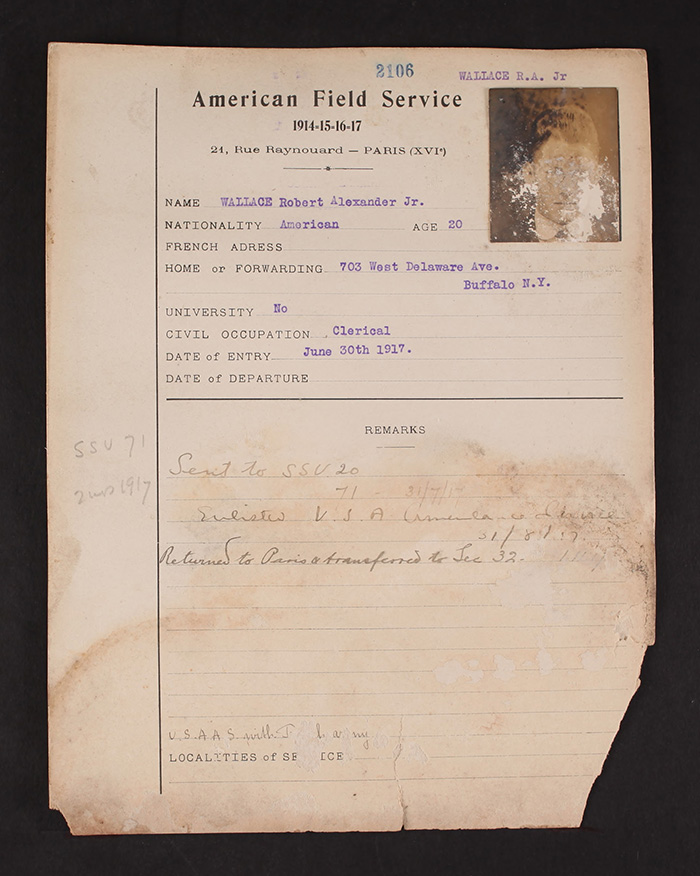 2106
WALLACE R.A. Jr
American Field Service
1914-15-16-17
21, Rue Raynouard — PARIS (XVIe)
NAME WALLACE Robert Alexander Jr.
NATIONALITY American AGE 20
FRENCH ADRESS
HOME or FORWARDING 703 West Delaware Ave.
Buffalo N.Y.
UNIVERSITY No
CIVIL OCCUPATION Clerical
DATE of ENTRY June 30th 1917.
DATE of DEPARTURE
REMARKS
SSU 71
1917
Sent to SSU 20
71 - 31/7/17
Enlisted U.S.A Ambulance Service
31/8/17.
Returned to Paris & transferred to Sec 32.
U.S.A.A.S. with
LOCALITIES of SE ICE